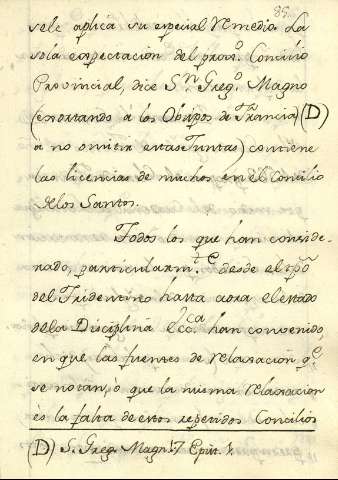 85.
sele aplica su especial remedio. La
sola expectacion del proxo. Concilio
Provincial, dice Sn. Grego. Magno
(exortando a los Obispos de Francia (D)
à no omitir estas Juntas) contiene
las licencias de muchos en el Concilio
delos Santos.
Todos los que han conside-
rado, particularmte. desde el tpõ
del Tridentino hasta aora el estado
dela Disciplina Ecca. han convenido,
en que las fuentes de relaxacion qe.
se notan, ò que la misma relaxacion
ès la falta de estos repetidos Concilios
(D) S. Greg. Magn. 7 Epist. 1.